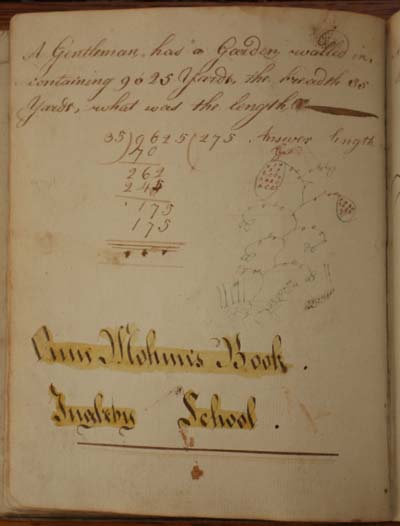 A Gentleman has a Garden walled in,
containing 9625 Yards, the breadth 35
Yards, what was the length
35)9625(275 Answer length
70
262
245
175
175
Mohun's Book.
Ingleby School.